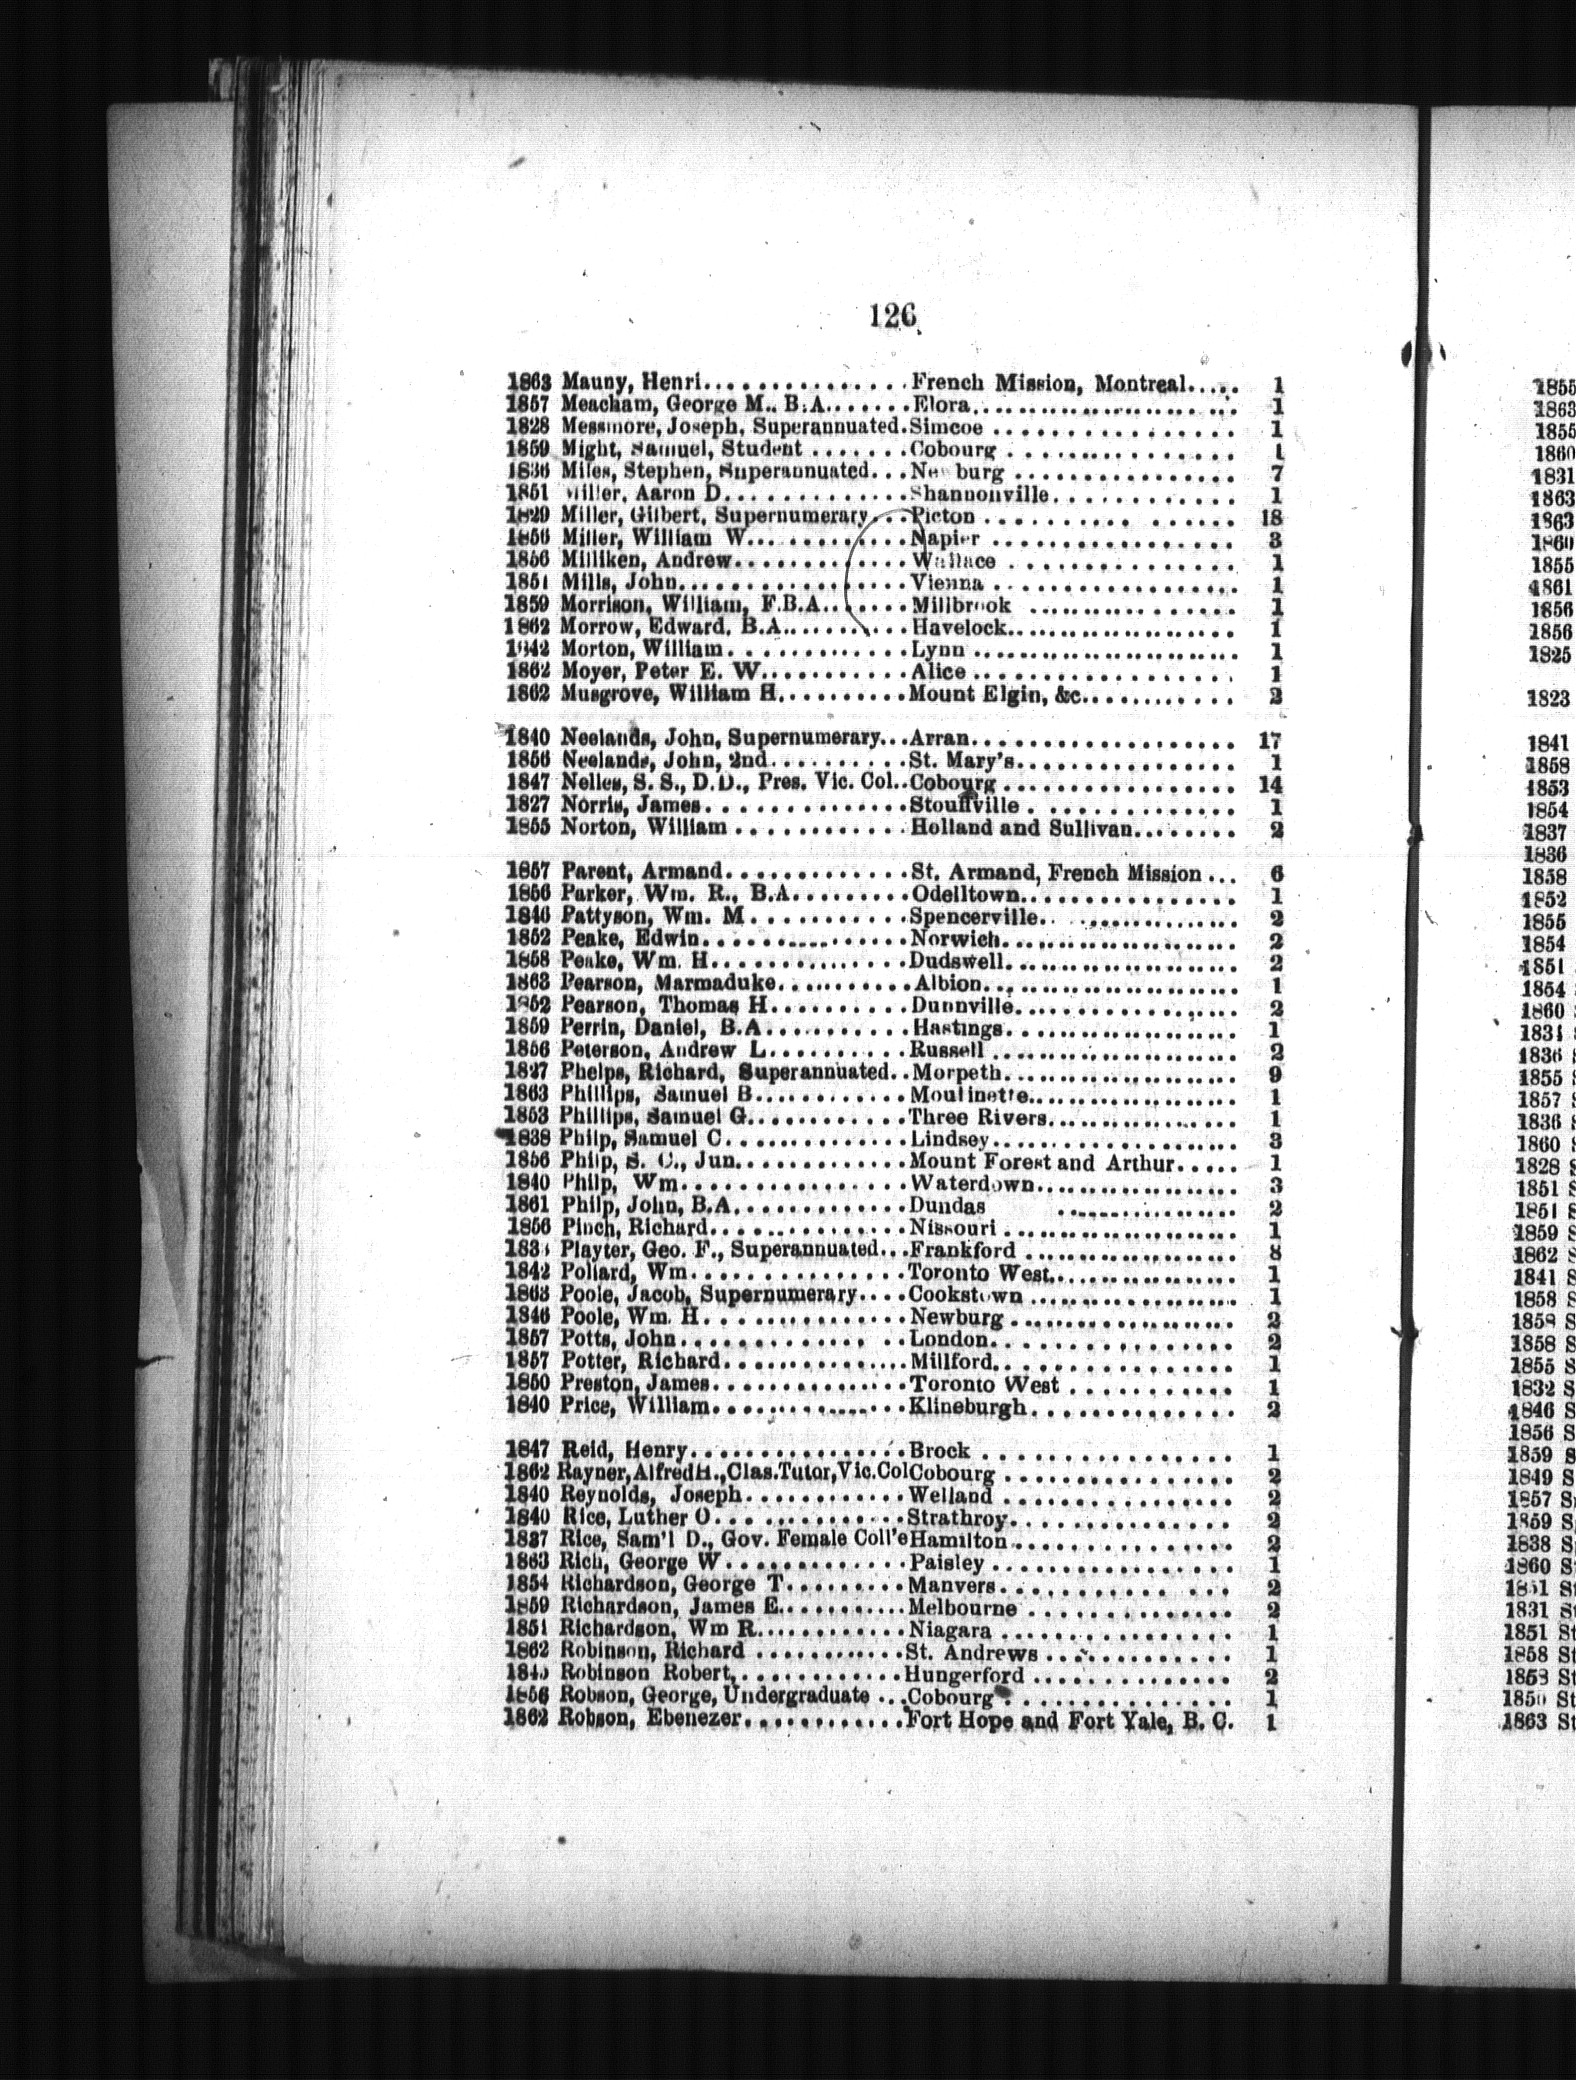 126
1863 Mauny, Henri...............French Mission, Montreal..... 1
1857 Meacham, George M., B.A.......Elora.................... 1
1828 Messmore, Joseph, Superannuated.Simcoe .................. 1
1859 Might, Samuel, Student .......Cobourg ................. 1
1836 Miles, Stephen, Superannuated...Newburg ................. 7
1851 Miller, Aaron D..............Shannonville............. 1
1829 Miller, Gilbert, Supernumerary...Picton .......... ...... 18
1856 Miller, William W............Napier .................. 3
1856 Milliken, Andrew.............Wallace ................. 1
1851 Mills, John.................Vienna .................. 1
1859 Morrison, William, F.B.A.......Millbrook ................ 1
1862 Morrow, Edward, B.A..........Havelock.................. 1
1842 Morton, William..............Lynn .................... 1
1862 Moyer, Peter E. W...........Alice .................... 1
1862 Musgrove, William H..........Mount Elgin, &c........... 2
1840 Neelands, John, Supernumerary...Arran................... 17
1856 Neelands, John, 2nd..........St. Mary's................ 1
1847 Nelles, S. S., D.D., Pres. Vic. Col..Cobourg ................. 14
1827 Norris, James...............Stouffville ............... 1
1855 Norton, William .............Holland and Sullivan........ 2
1857 Parent, Armand..............St. Armand, French Mission ... 6
1856 Parker, Wm. R., B.A.........Odelltown................ 1
1846 Pattyson, Wm. M............Spencerville............... 2
1852 Peake, Edwin................Norwich.................. 2
1858 Peake, Wm. H...............Dudswell................. 2
1863 Pearson, Marmaduke..........Albion.................... 1
1852 Pearson, Thomas H..........Dunnville................. 2
1859 Perrin, Daniel, B.A...........Hastings.................. 1
1856 Peterson, Andrew L...........Russell ................... 2
1827 Phelps, Richard, Superannuated..Morpeth.................. 9
1863 Phillips, Samuel B............Moulinette................ 1
1853 Phillips, Samuel G............Three Rivers.............. 1
1838 Philp, Samuel C..............Lindsey.................. 3
1856 Philp, S. C., Jun.............Mount Forest and Arthur..... 1
1840 Philp, Wm.................Waterdown................ 3
1861 Philp, John, B.A.............Dundas ............... 2
1856 Pinch, Richard...............Nissouri .................. 1
Playter, Geo. F., Superannuated...Frankford ................ 8
1842 Pollard, Wm................Toronto West.............. 1
1863 Poole, Jacob, Supernumerary....Cookstown ................ 1
1846 Poole, Wm. H...............Newburg ................. 2
1857 Potts, John.................London................... 2
1857 Potter, Richard..............Millford.................. 1
1850 Preston, James...............Toronto West ............ 1
1840 Price, William...............Klineburgh............... 2
1847 Reid, Henry................Brock ................... 1
1862 Rayner, Alfred H., Clas. Tutor, Vic. Col Cobourg ................. 2
1840 Reynolds, Joseph............Welland ................. 2
1840 Rice, Luther O...............Strathroy................. 2
1837 Rice, Sam'l D., Gov. Female Coll'e Hamilton................. 2
1863 Rich, George W..............Paisley .................. 1
1854 Richardson, George T.........Manvers................. 2
1859 Richardson, James E..........Melbourne ............... 2
1851 Richardson, Wm R............Niagara ................. 1
1862 Robinson, Richard ...........St. Andrews .............. 1
Robinson Robert,............Hungerford ............... 2
1856 Robson, George, Undergraduate ...Cobourg ................. 1
1862 Robson, Ebenezer............Fort Hope and Fort Yale, B. C. 1
1855
1863
1855
1860
1831
1863
1863
1860
1855
1861
1856
1856
1825
1823
1841
1858
1853
1854
1837
1836
1858
1852
1855
1854
1851
1854
1860
1831
1836
1855
1857
1836
1860
1828
1851
1851
1859
1862
1841
1858
1858
1858
1855
1832
1846
1856
1859
1849
1857
1859
1838
1860
1831
1851
1858
1853
1863